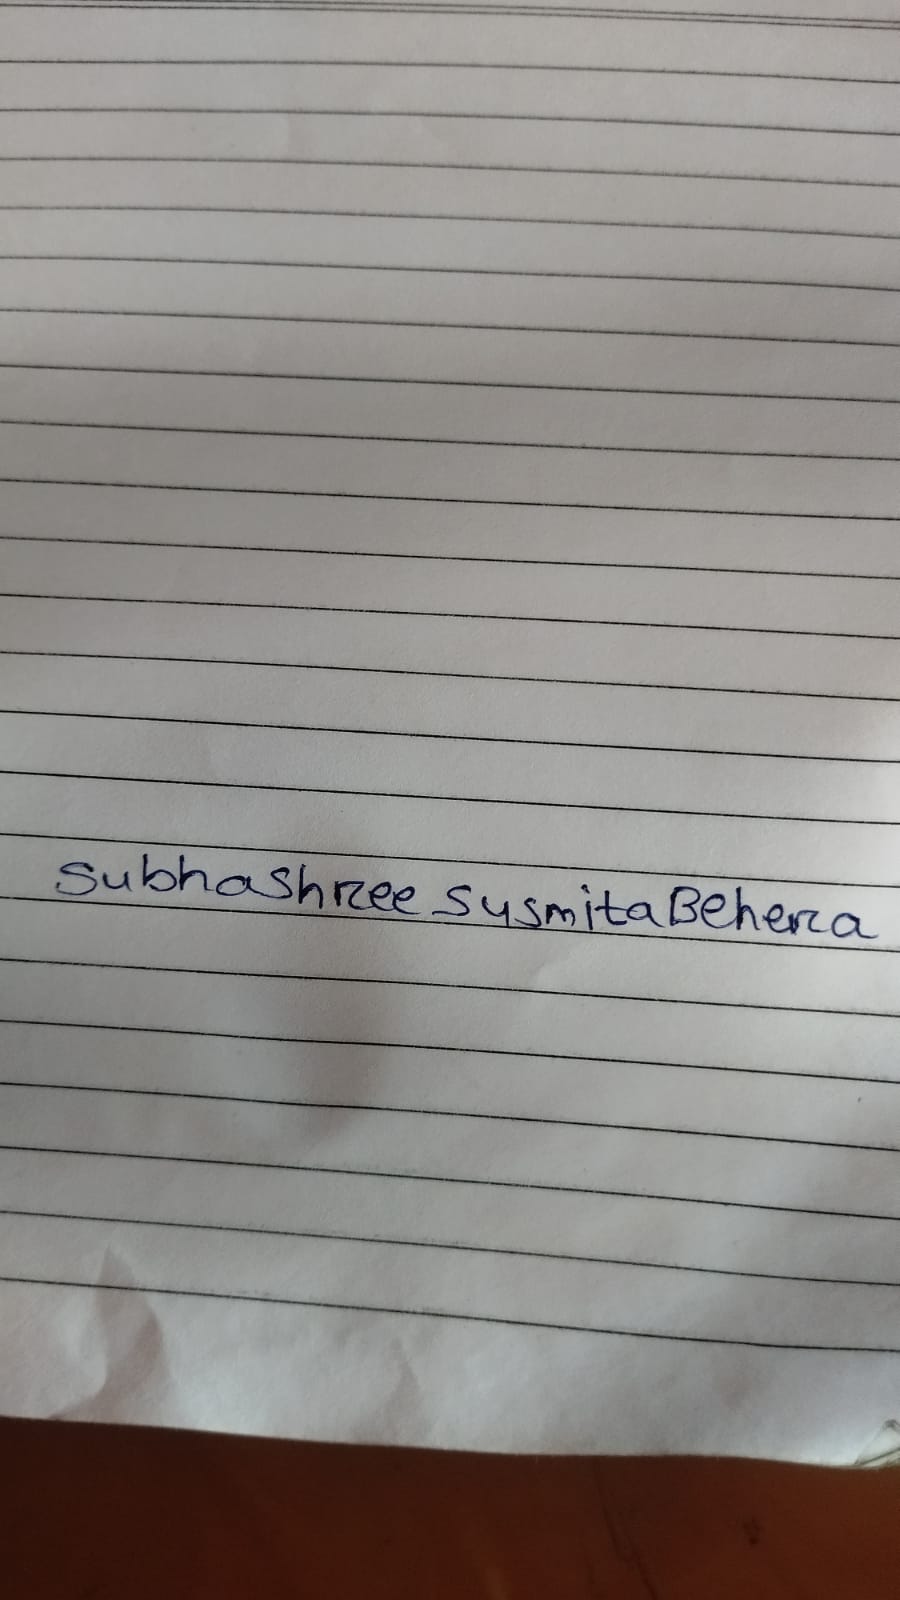 Subhashree Sysmita Behera